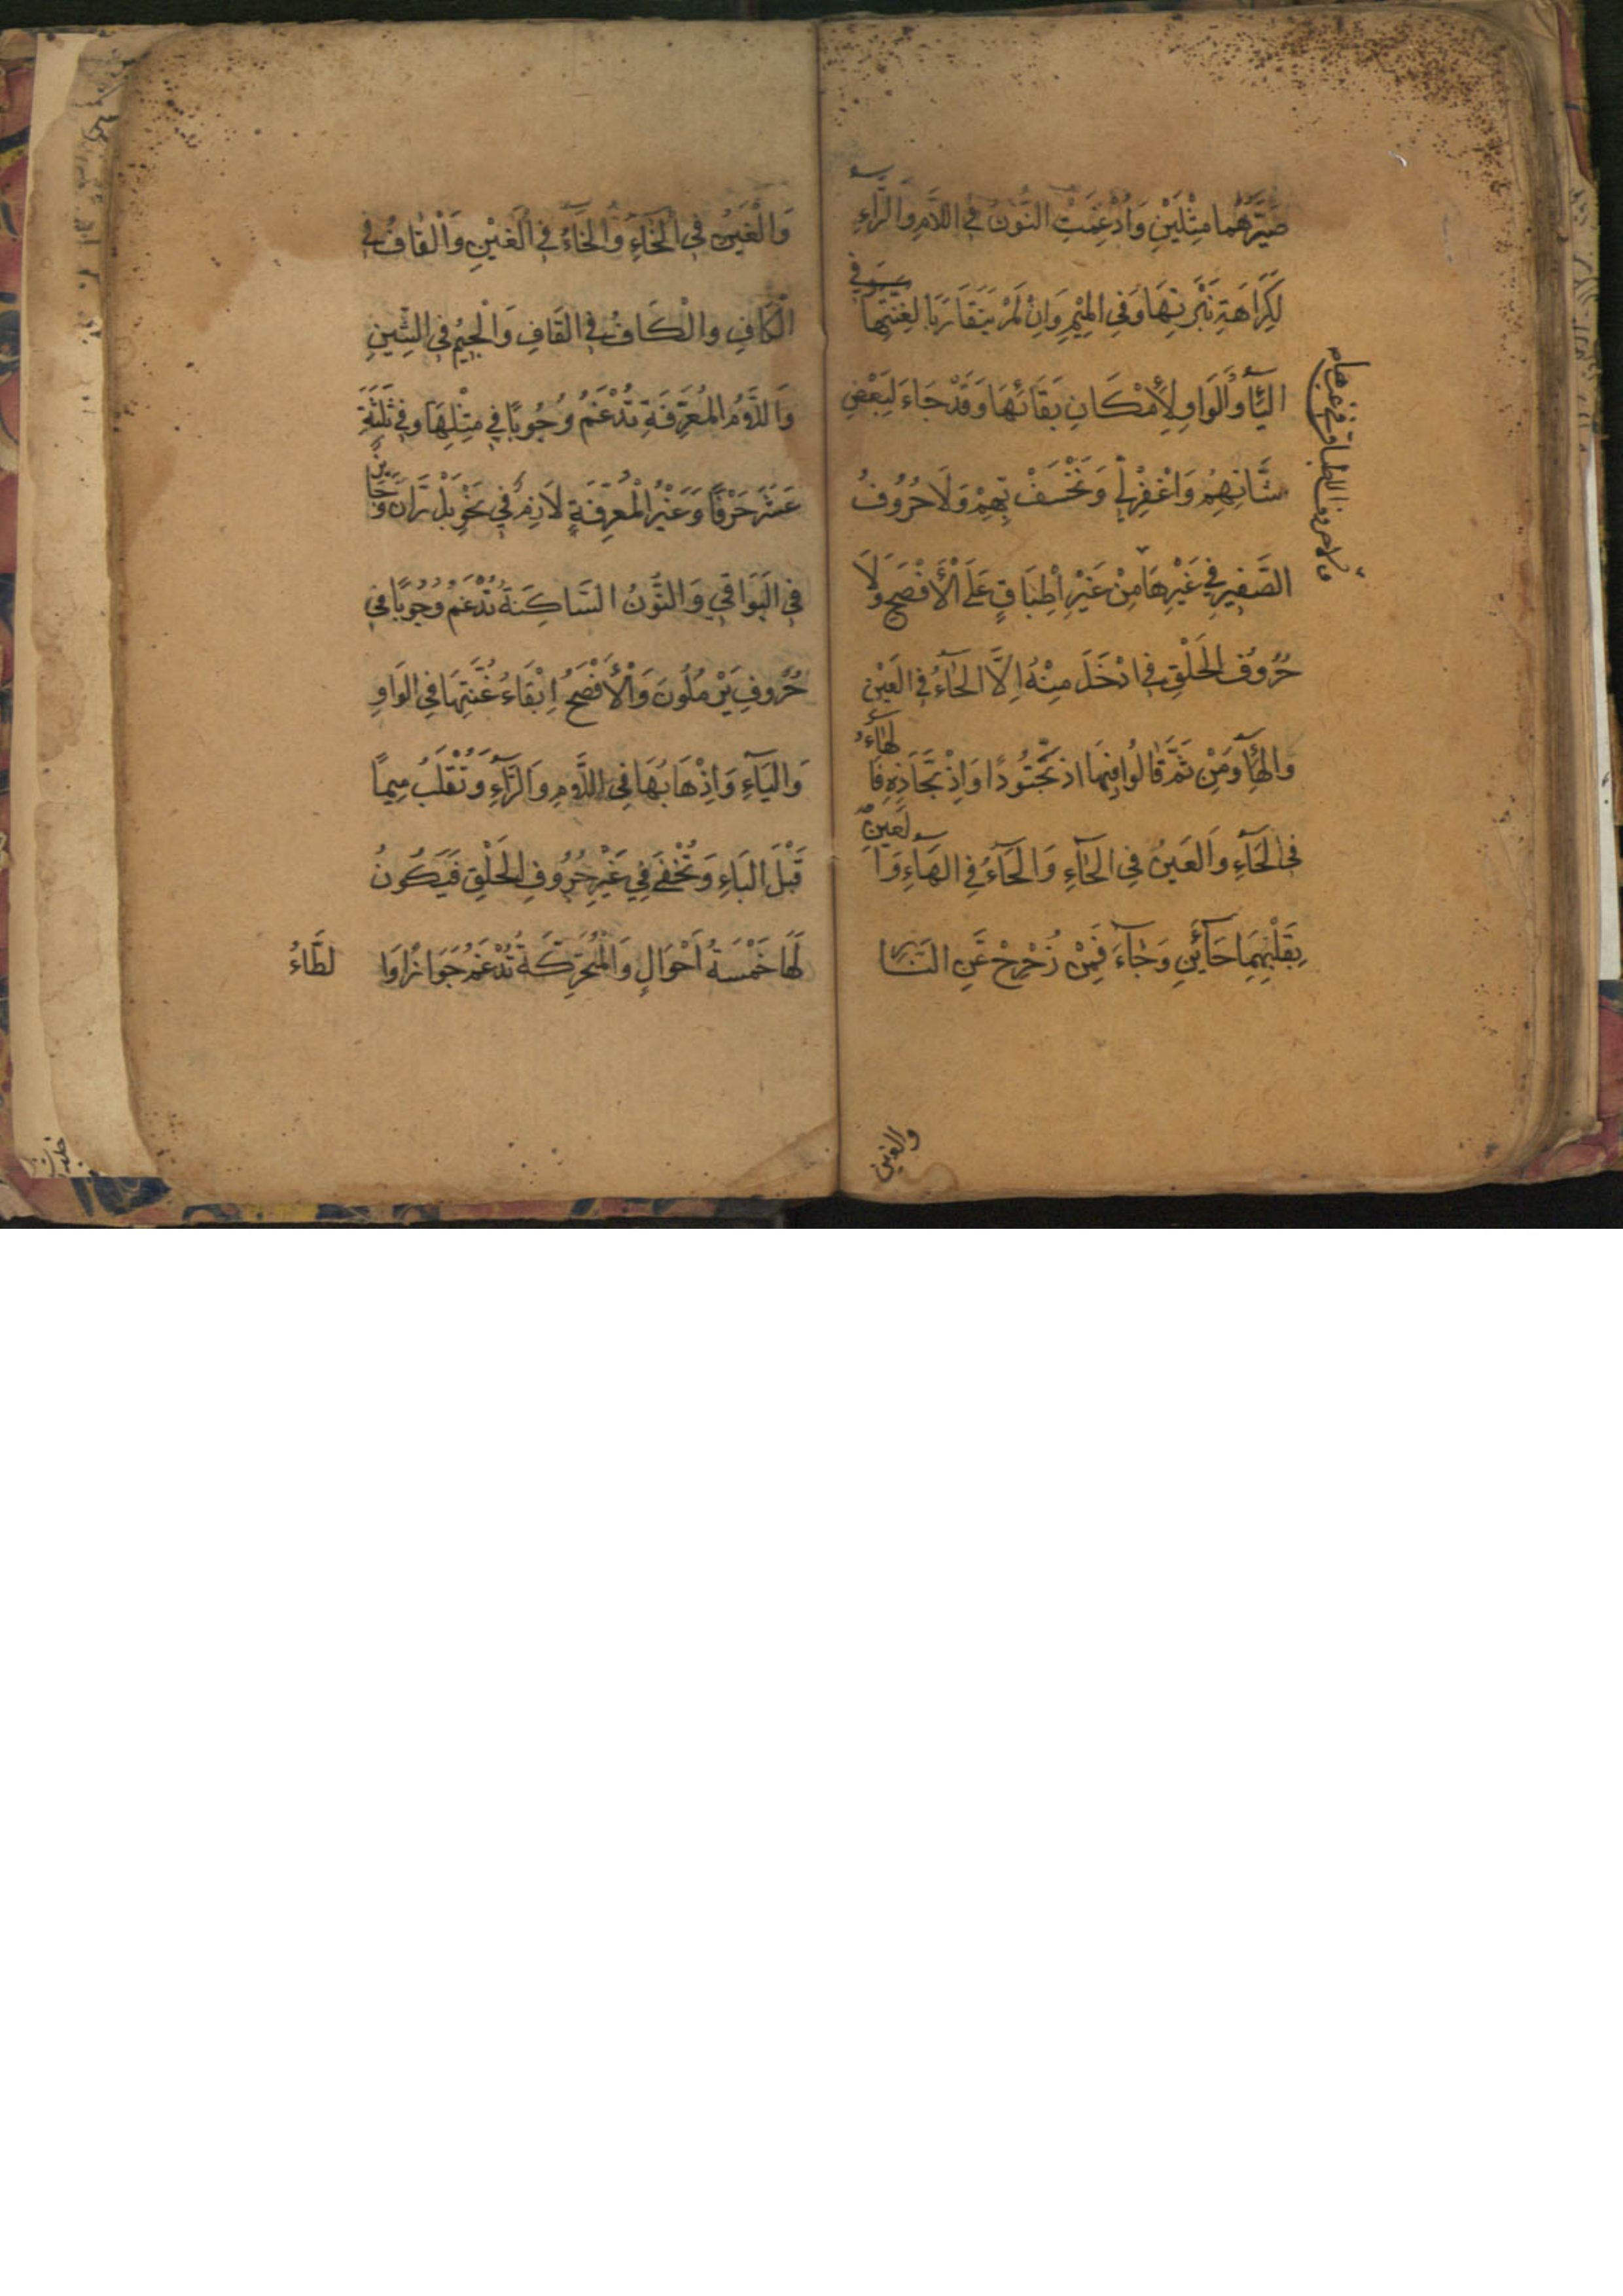 صَيَّرَهُمَا مِثْلَيْنِ وَاُدْغِمَتِ النُّونُ فِي اللَّامِ وَالرَّآءِ
لِكَرَاهَةِ نَبْرَتِهَا وَفِي الْمِيْمِ وَاِنْ لَمْ يَتَقَارَبَا لِغُنَّتِهَا وَفِي
اليَآءِ وَالْوَاوِ لِاِمْكَانِ بَقَائِهَا وَقَدْ جَاءَ لِبَعْضِ
شَّانِهِمْ وَاغْفِرْلِي وَنَخْسَفْ بِهِمْ وَلَا حُرُوفُ
الصَّفِيرِ فِي غَيْرِهَا مِنْ غَيْرِ اِطْبَاقٍ عَلَى الْأَفْصَحِ وَلَا
حُرُوفُ الْحَلْقِ فِي ادْخَلَ مِنْهُ اِلَّا الْحَآءُ فِي الْعَيْنِ
وَالْهَآءِ وَمِنْ ثَمَّ قَالُوا فِيهَا اذبَحَّتُودًا وَاِذْبَحَّاذِهِ فَالهَآءُ
فِي الْحَآءِ وَالعَيْنُ فِي الْحَآءِ وَالْحَآءُ فِي الْهَآءِ وَالعَينِ
بِقَلْبِهِمَا حَآئَيْنِ وَجَآءَ فَمَنْ زُحْزِحَ عَنِ النَّارِ
ولا حروف الاطباق فى غيرها م
والغين
وَالْغَيْنُ فِي الْخَآءِ وَالْخَآءُ فِي الْغَيْنِ وَالْقَافُ فِي
الْكَافِ وَالْكَافُ فِي الْقَافِ وَالْجِيْمُ فِي الشِّينِ
وَاللَّامُ الْمُعَرِّفَةِ تُدْغَمُ وُجُوبًا فِي مِثْلِهَا وَفِي ثَلٰثَةِ
عَشَرَ حَرْفًا وَغَيْرُ الْمُعَرِّفَةِ لَازِمٌ فِي نَحْوِ بَلْ رَانَ وَجَائِزٌ
فِي الْبَوَاقِي وَالنُّونُ السَّاكِنَةُ تُدْغَمُ وُجُوبًا فِي
حُرُوفِ يَرْمُلُونَ وَالْأَفْصَحُ اِبْقَاءُ غُنَّتِهَا فِي الْوَاوِ
وَالْيَآءِ وَاِذْهَابُهَا فِي اللَّامِ وَالرَّآءِ وَتُقْلَبُ مِيمًا
قَبْلَ الْبَاءِ وَتُخْفَى فِي غَيْرِ حُرُوفِ الْحَلْقِ فَيَكُونُ
لَهَا خَمْسَةُ اَحْوَالٍ وَالْمُتَحَرِّكَةُ تُدْغَمُ جَوَازًا وَا لطَّاءُ